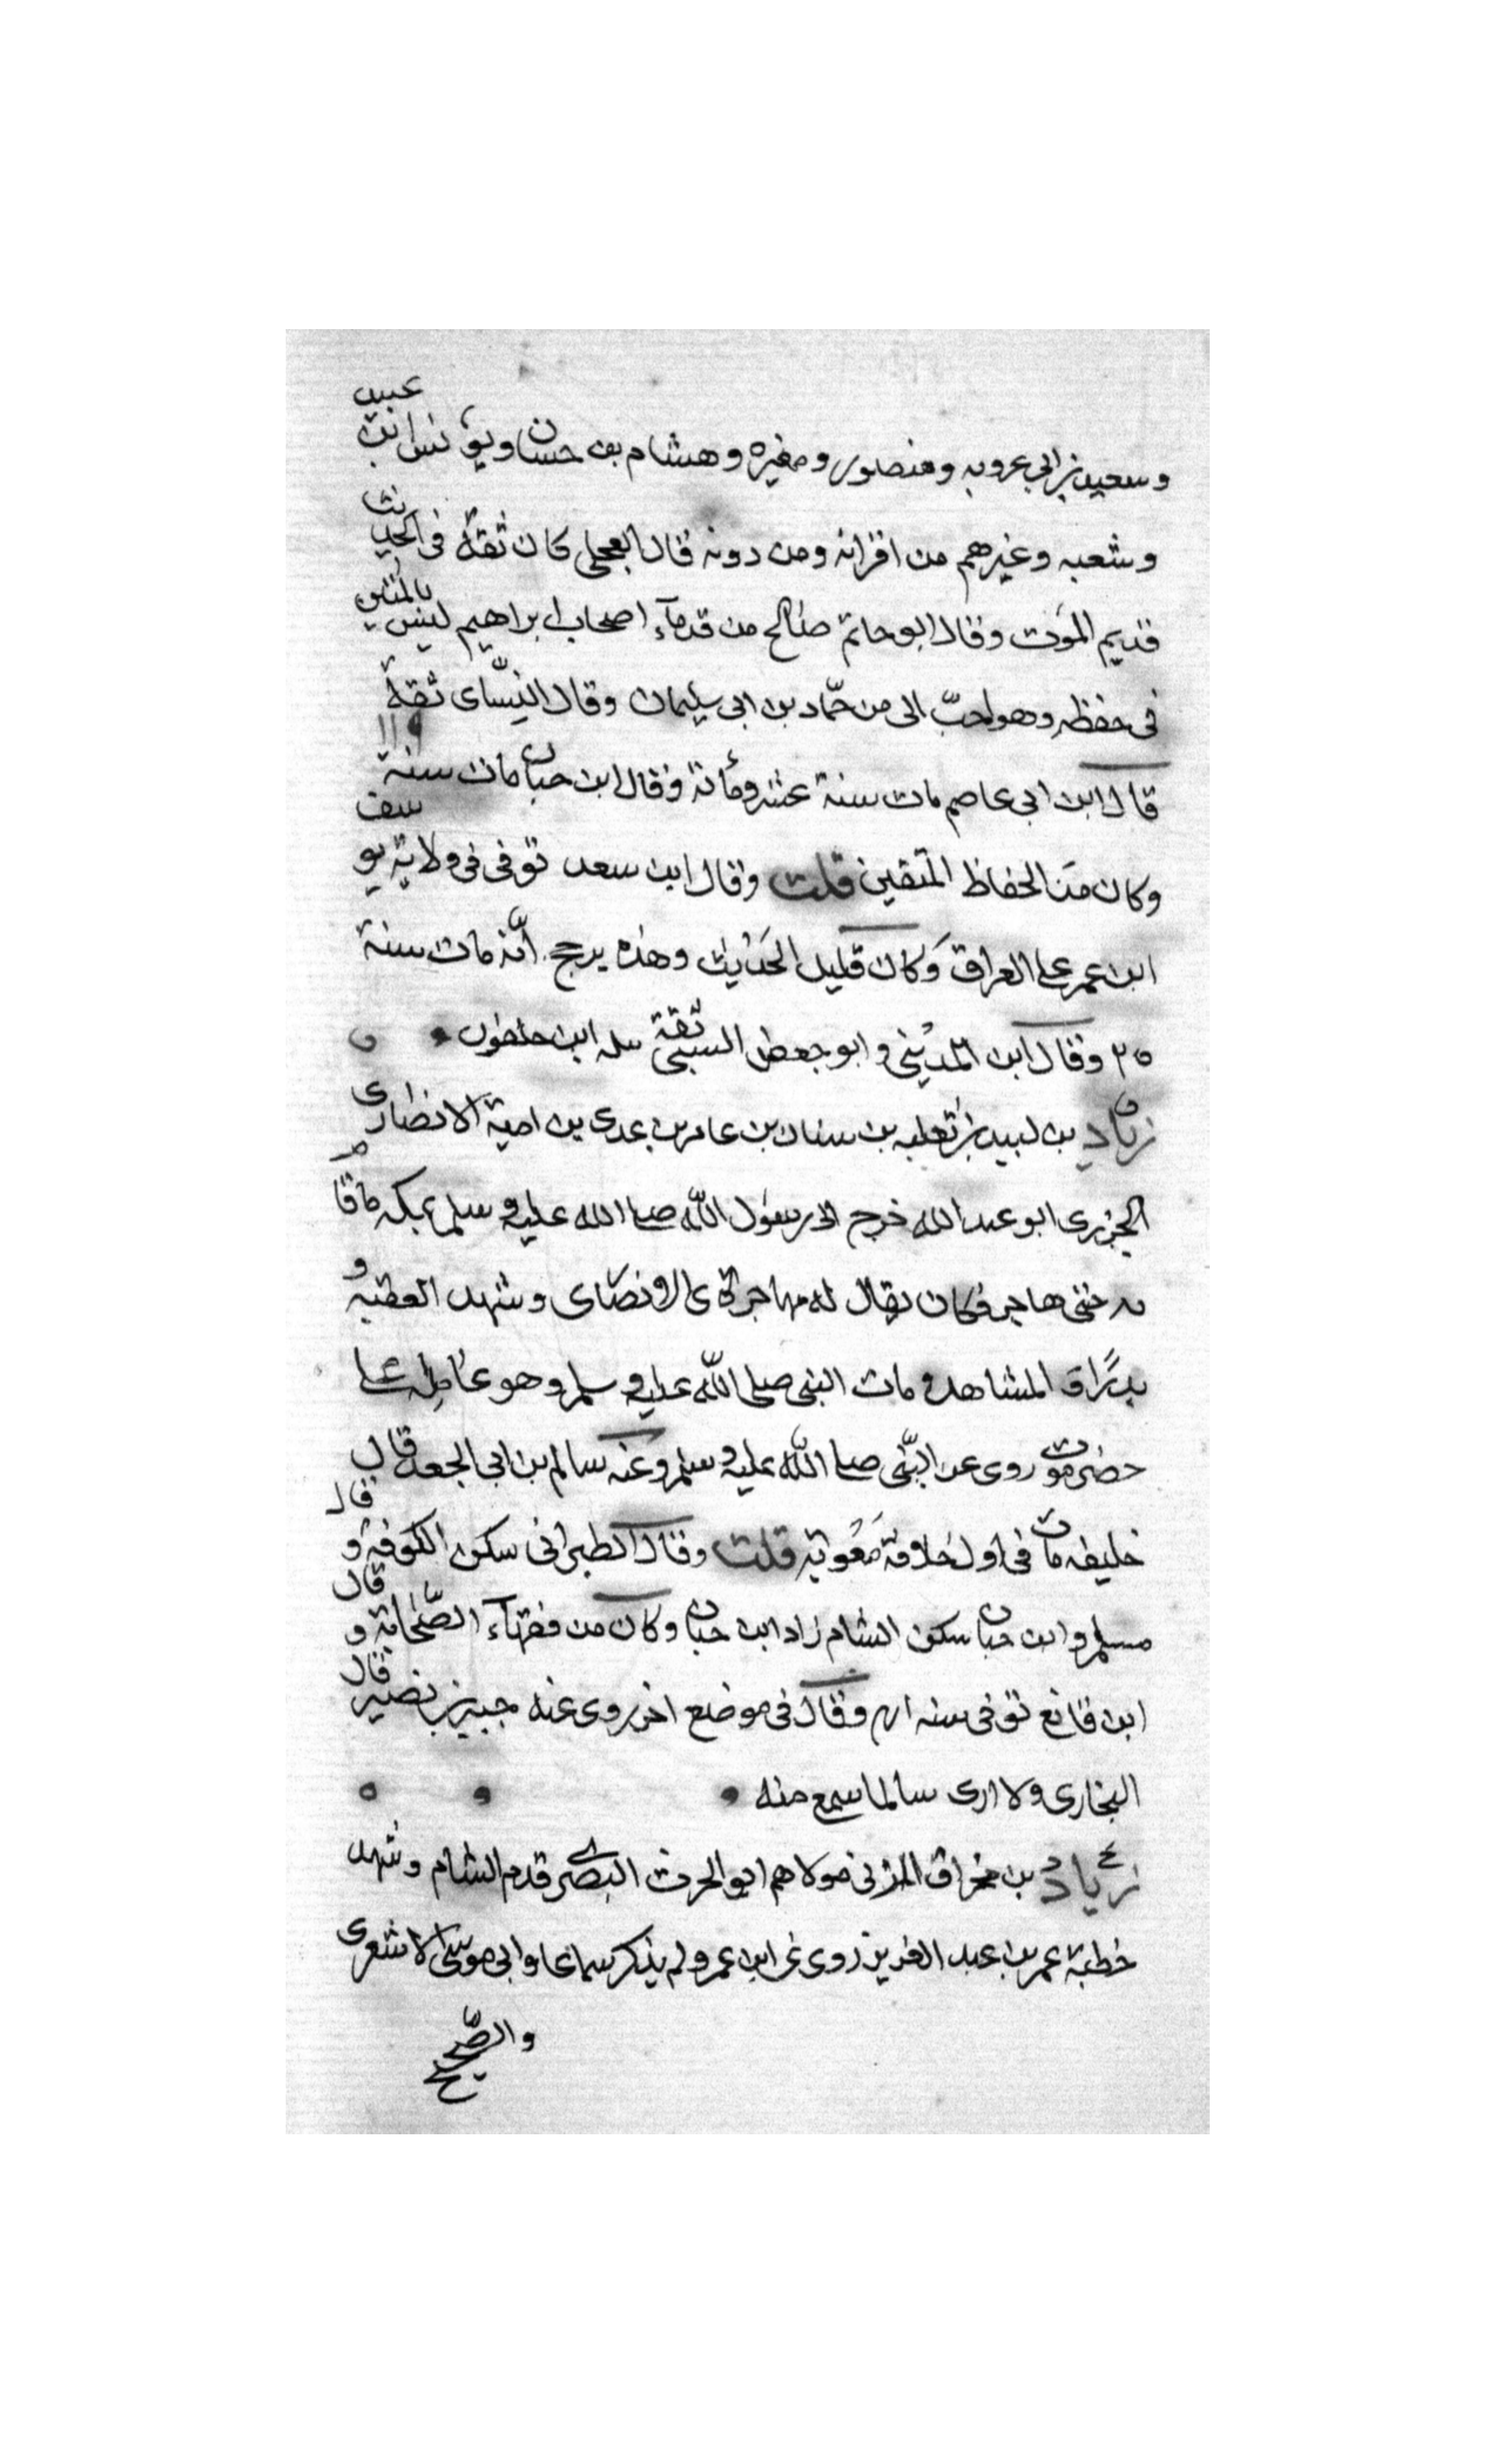 وسعيد بن ابي عروبه ومنصور ومغيره وهشام بن حسان ويونس ابن عبيد
وشعبه وغيرهم من اقرانه ومن دونه قال العجلي كان ثقة فى الحديث
قديم الموت وقال ابو حاتم صالح من قدمآء اصحاب ابراهيم ليس بالمتين
فى حفظه وهو احبّ الى من حمّاد بن ابى سليمان وقال النسّاى ثقة
قال ابن ابى عاصم مات سنة عشر ومأئة وقال ابن حبان مات سنة ١١٩
وكان من الحفاظ المتقين قلت وقال ابن سعد توفى فى ولاية يوسف
ابن عمر على العراق وكان قليل الحديث وهذه يرجح أنّه مات سنة
٢٥ وقال ابن المدينى وابو جعفر السبتى ثقة
زياد بن لبيد بن ثعلبه بن سنان بن عامر بن عدى بن امية الانصارى
ابو عبد الله خرج الى رسول الله صلى الله عليه وسلم بمكه فاقام
حتى هاجر فكان يقال له مهاجرى انصارى وشهد العقبه و
بدرًا و المشاهد و مات النبى صلى الله عليه وسلم وهو عامله على
حضرموت روى عن النّبى صلى الله عليه وسلم وعنه سالم بن ابى الجعد قال
خليفه مات فى اول خلافة معوية قلت وقال الطبرانى سكن الكوفة و قال
مسلم وابن حبان سكن الشام زاد ابن حبان وكان من فقهآء الصّحابة و قال
ابن قانع توفى سنه ٤١ وقال فى موضع اخر روى عنه جبير بن نصير قال
البخارى ولا ارى سالما سمع منه
زياد بن مخراق المزنى مولاهم ابو الحرث البصرى قدم الشام وشهد
خطبة عمر بن عبد العزيز روى عن ابن عمر ولم يذكر سماعا وابى موسى الاشعرى
والصّحيح